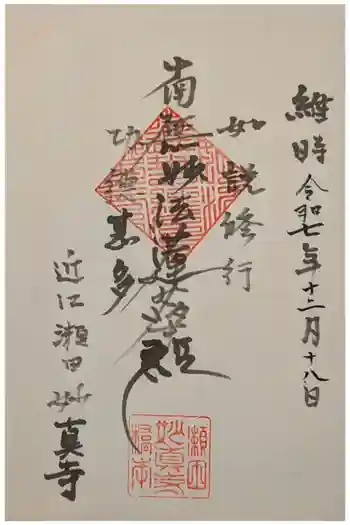 維時 令和七年十二月十八日
如説修行
南無妙法蓮華経
功徳甚多
近江瀬田 妙真寺